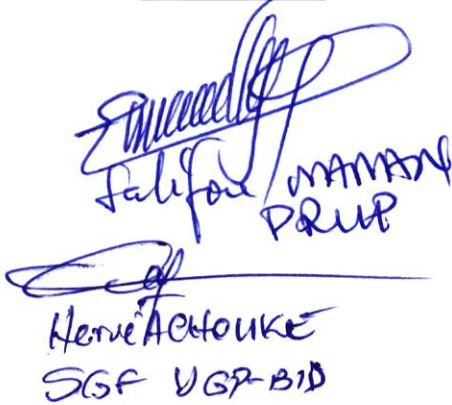 Salifou MAMAN
PRMP
Hervé ACHOUKE
SGF UGP-BID